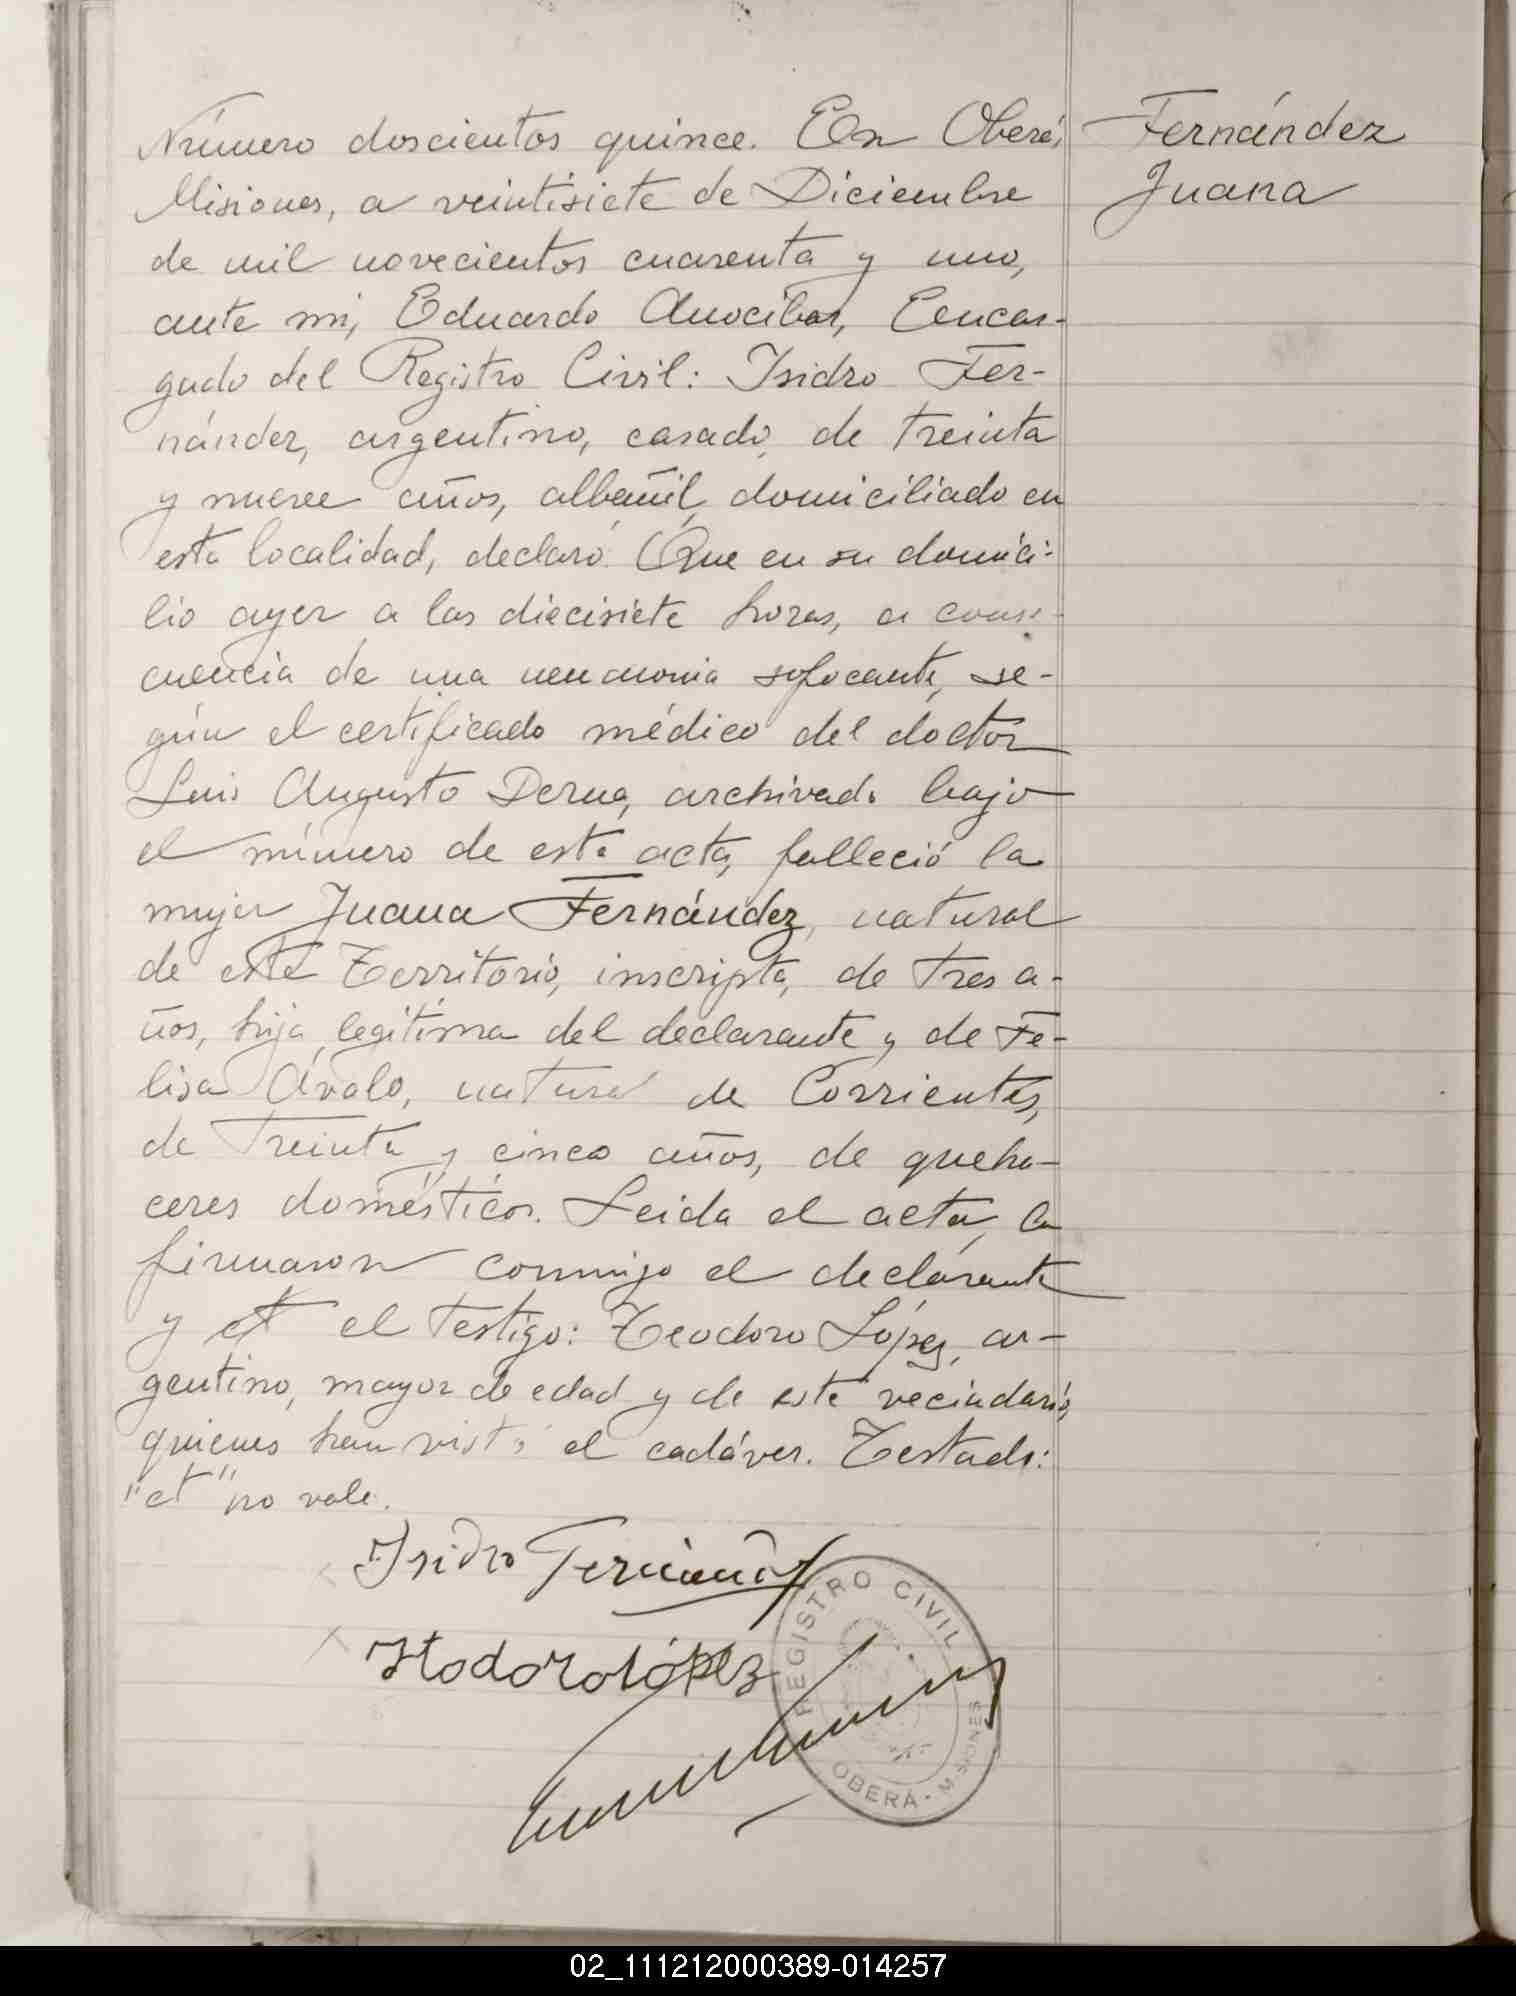 Número doscientos quince. En Oberá,
Misiones, a veintisiete de Diciembre
de mil novecientos cuarenta y uno,
ante mi, Eduardo Anocibar, Encar-
gado del Registro Civil: Isidro Fer-
nández, argentino, casado, de treinta
y nueve años, albañil, domiciliado en
esta localidad, declaró: Que en su domici-
lio ayer a las diecisiete horas, a conse-
cuencia de una neumonia sofocante, se-
gún el certificado médico del doctor
Luis Augusto Derna, archivado bajo
el número de esta acta, falleció la
mujer Juana Fernández, natural
de este Territorio, inscripta, de tres a-
ños, hija legítima del declarante y de Fe-
lisa Ávalo, natural de Corrientes,
de treinta y cinco años, de queha-
ceres domésticos. Leida el acta, la
firmaron conmigo el declarante
y et el testigo: Teodoro López, ar-
gentino, mayor de edad y de este vecindario,
quienes han visto el cadáver. Testado:
"et" no vale.
Fernández
Juana
Isidro Fernández
Teodoro López
REGISTRO CIVIL
OBERÁ - MISIONES
02_111212000389-014257